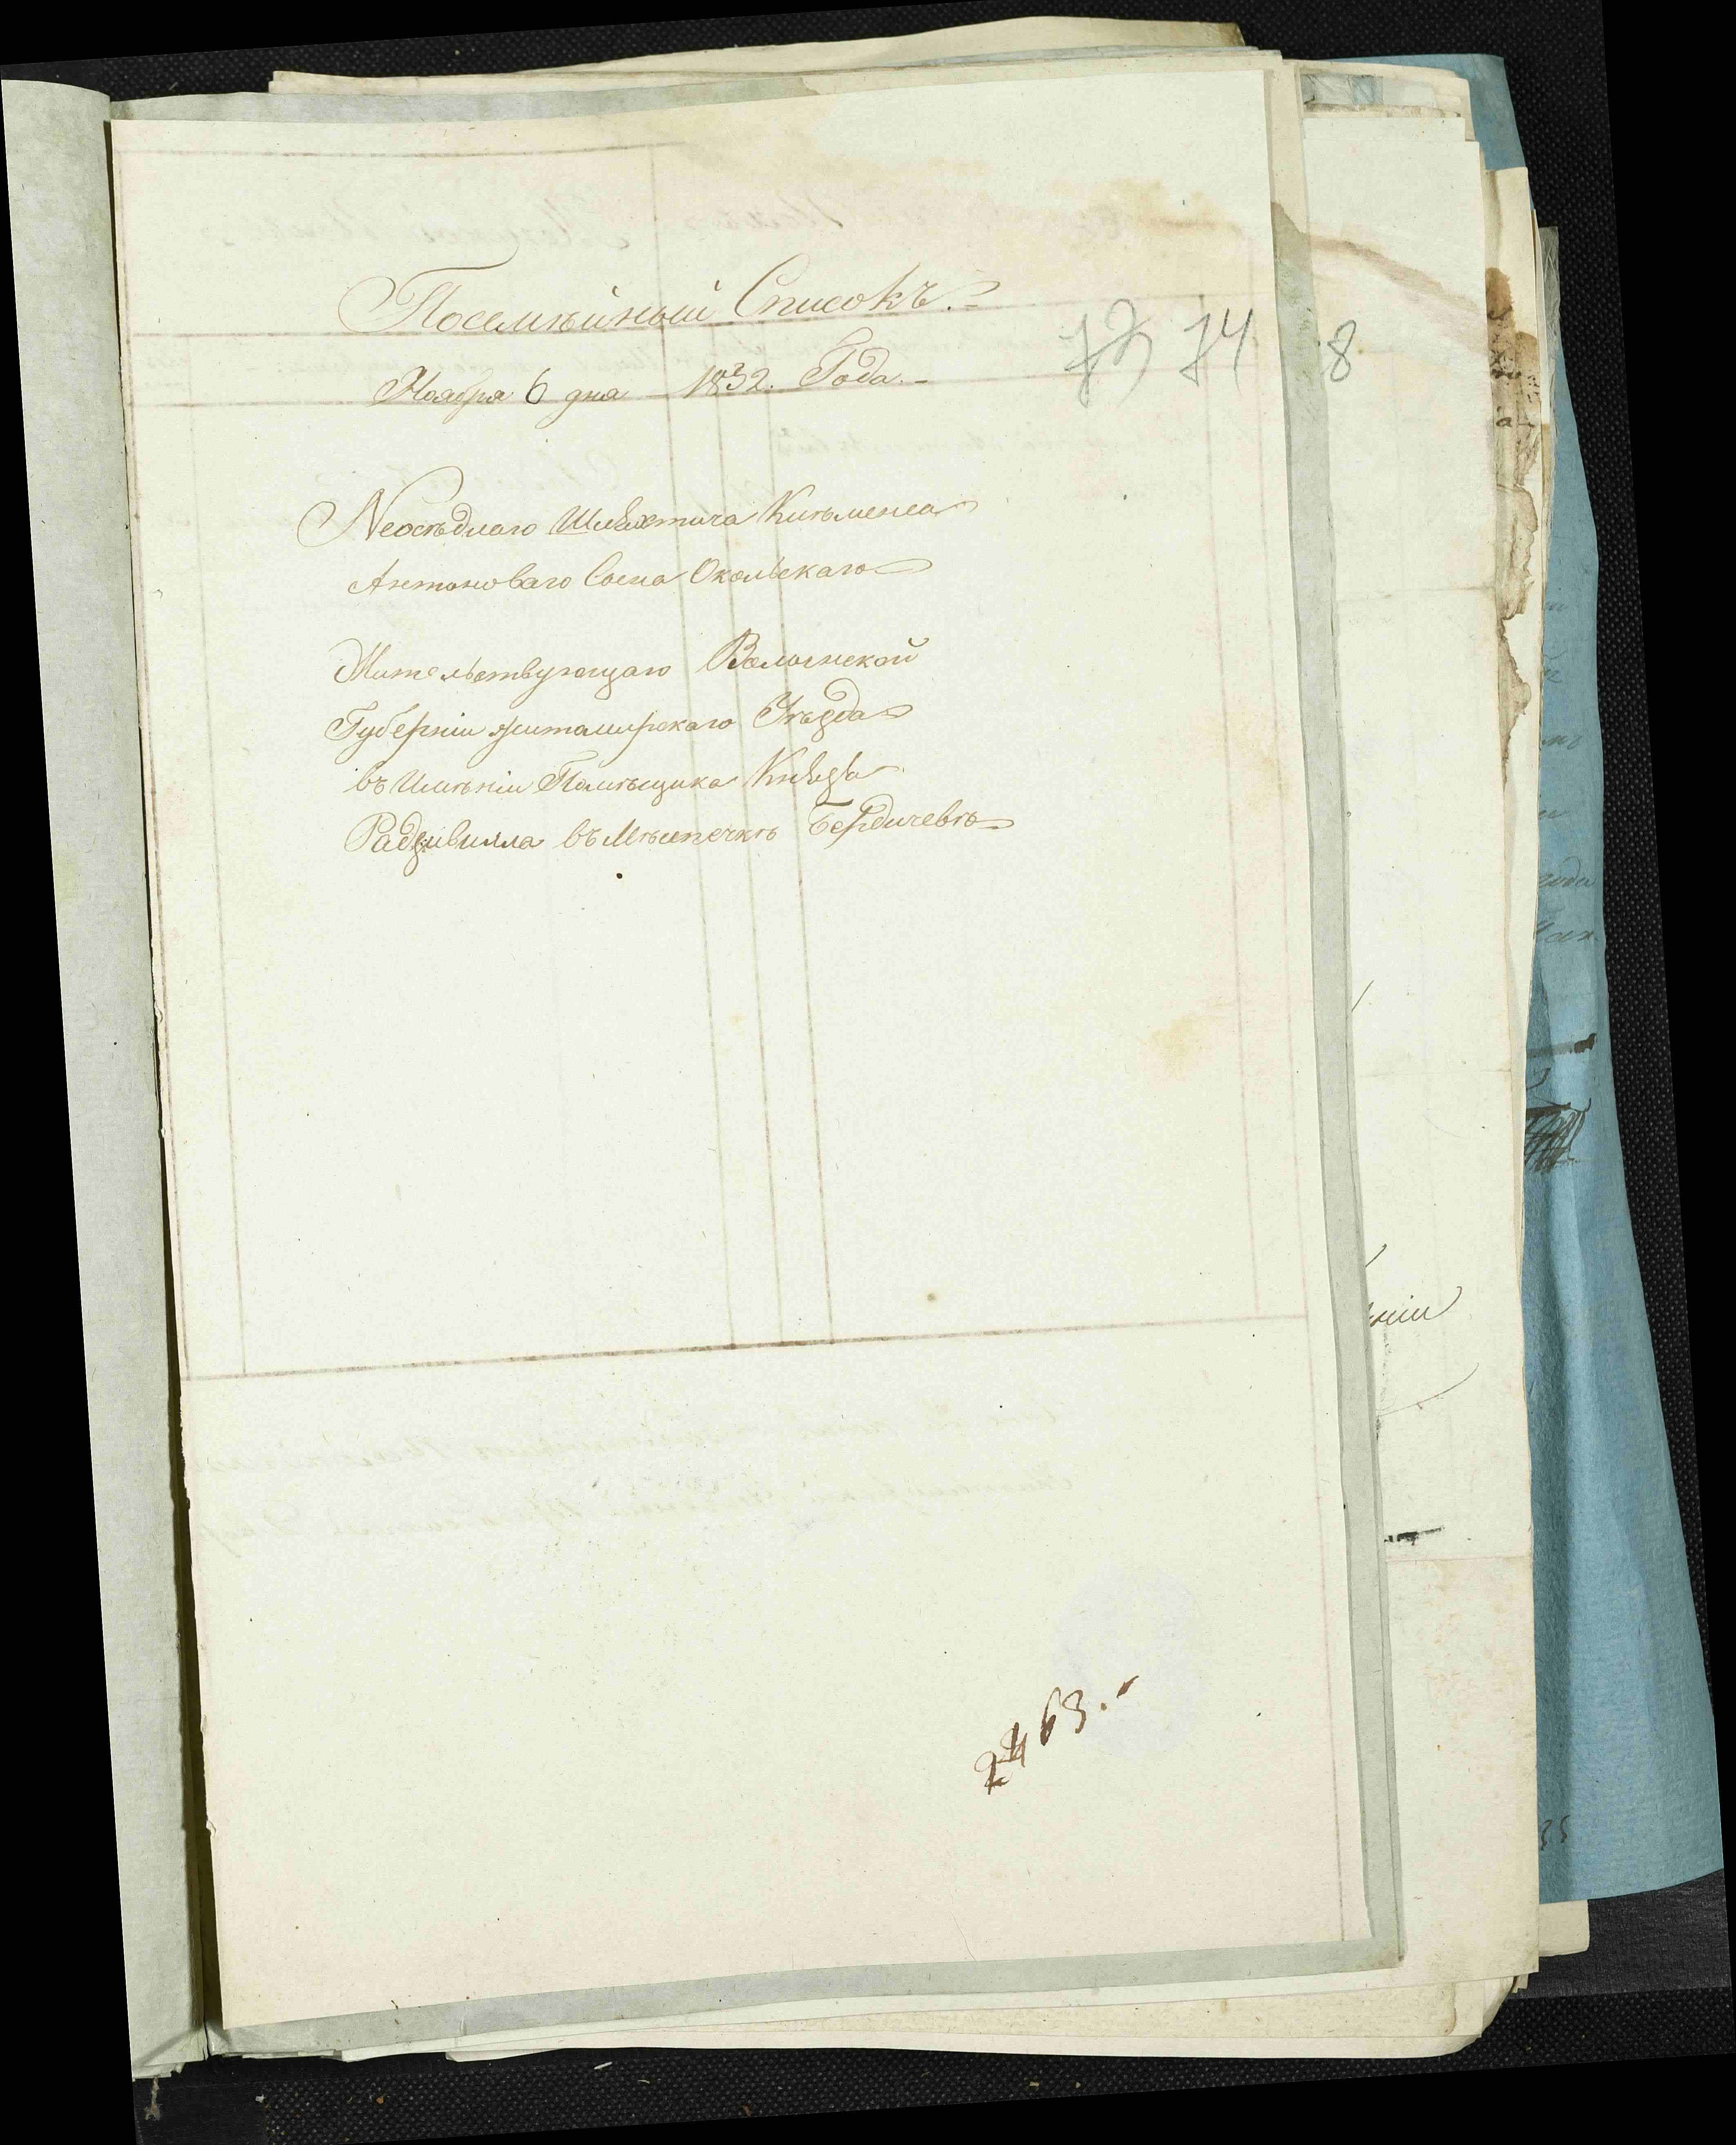 Посемѣйный Списокъ.-
Ноября 6 дня 1832. Года.-
73 74
8
Неосѣдлаго Шляхтича Кинтмена
Антоноваго Сына Окольскаго
Жительствующаго Волынской
Губерніи Житомирскаго Уѣзда
въ Имѣніи Помѣщика Князя
Радзивилла въ Мѣстечкѣ Бердичевѣ
2463.-